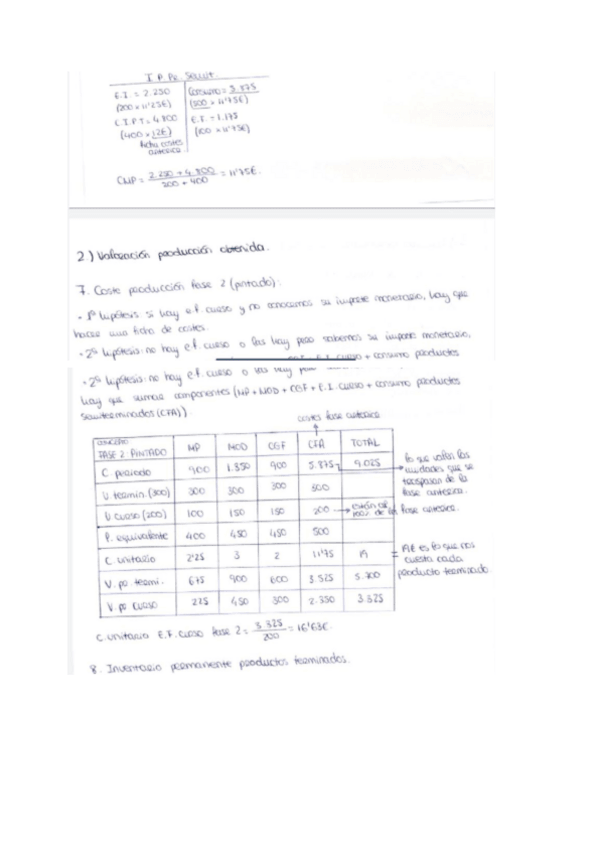 I.P. Pe. Semit.
E.I. = 2.250 Consumo = 5.875
(200 x 11'25€) (500 x 11'75€)
C.I.P.T = 4.800 E.F. = 1.175
(400 x 12€) (100 x 11'75€)
ficha costes
anterior.
CMP = 2.250 + 4.800 / 200 + 400 = 11'75€.
2.) Valoración producción obtenida.
7. Coste producción fase 2 (pintado).
• 1ª hipótesis: si hay e.f. curso y no conocemos su importe monetario, hay que
hacer una ficha de costes.
• 2ª hipótesis: no hay e.f. curso o las hay pero sabemos su importe monetario,
E.I. curso + consumo productos
• 2ª hipótesis: no hay e.f. curso o las hay
hay que sumar componentes (MP + MOD + CGF + E.I. curso + consumo productos
semiterminados (CFA))
costes fase anterior
CONCEPTO
FASE 2: PINTADO MP MOD CGF CFA TOTAL
C. periodo 900 1.350 900 5.875 9.025
U. termin. (300) 300 300 300 300
U. curso (200) 100 150 150 200
P. equivalente 400 450 450 500
C. unitario 2'25 3 2 11'75 19
V. po termi. 675 900 600 3.525 5.700
V. po curso 225 450 300 2.350 3.325
lo que valen las
unidades que se
traspasan de la
fase anterior.
están al
100% de la fase anterior.
19€ es lo que nos
cuesta cada
producto terminado
C. unitario E.F. curso fase 2 = 3.325 / 200 = 16'63€.
8. Inventario permanente productos terminados.